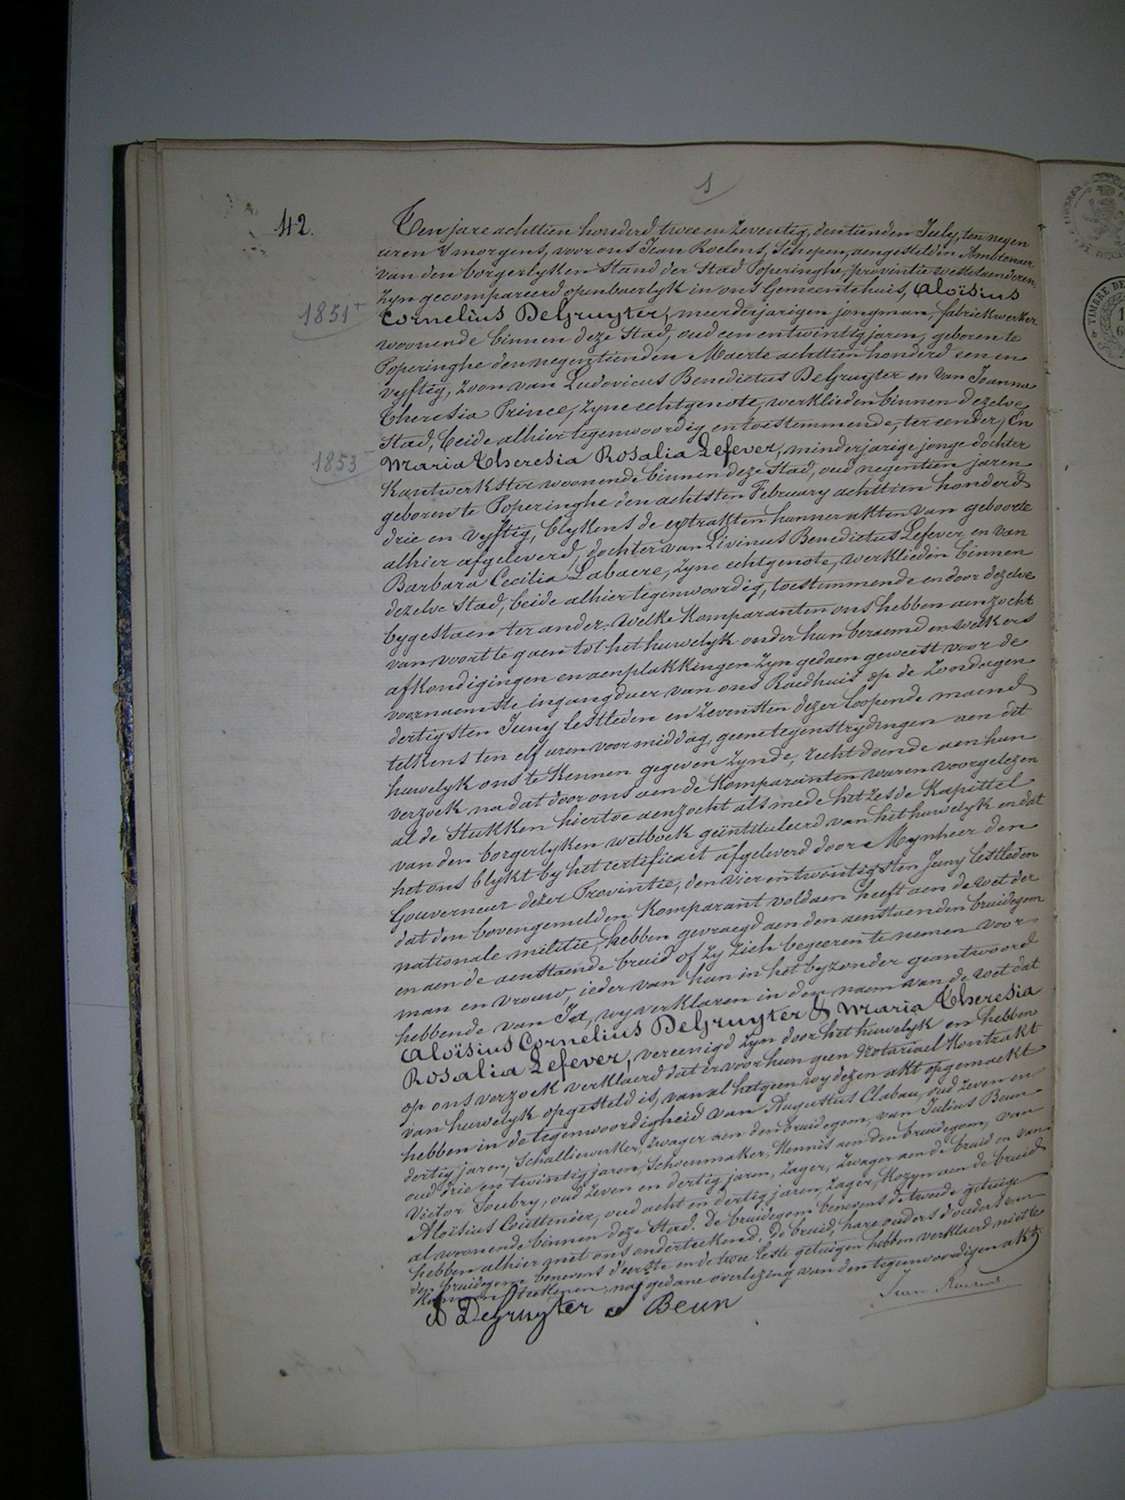 1
42.
Ten jare achttien honderd twee en zeventig, den tienden July, ten negen
uren 's morgens, voor ons Jean Roelens, Schepen, aengestelden Ambtenaer
van den borgerlyken Stand der Stad Poperinghe, provintie westvlaenderen,
Zyn gecompareerd openbaerlyk in ons Gemeentehuis, Aloïsius
1851
Cornelius DeGruyter, meerderjarigen jongman, fabriekwerker
woonende binnen deze Stad, oud een en twintig jaren, geboren te
Poperinghe den negentienden Maerte achttien honderd een en
vyftig, zoon van Ludovicus Benedictus DeGruyter en van Joanna
Theresia Prince, zyne echtgenote, werklieden binnen dezelve
Stad, beide alhier tegenwoordig en toestemmende, ter eender, En
1853
Maria Theresia Rosalia Lefever, minderjarige jonge dochter
Kantwerkster woonende binnen deze Stad, oud negentien jaren
geboren te Poperinghe den achtsten February achttien honderd
drie en vyftig, blykens de extrakten hunner akten van geboorte
alhier afgeleverd, dochter van Livinus Benedictus Lefever, en van
Barbara Cecilia Labaere, zyne echtgenote, werklieden binnen
dezelve Stad, beide alhier tegenwoordig, toestemmende en door dezelve
bygestaen ter ander. Welke Komparanten ons hebben aenzocht
van voort te gaen tot het huwelyk onder hun beraemd en welkers
afkondigingen en aenplakkingen zyn gedaen geweest voor de
voornaemste ingangduer van ons Raedhuis op de Zondagen
dertigsten Juny lestleden en zevensten dezer loopende maend
telkens ten elf uren voormiddag, geene tegenstrydingen aen dit
huwelyk ons te kennen gegeven zynde, recht doende aen hun
verzoek nadat door ons aen de Komparanten waren voorgelezen
al de Stukken hiertoe aenzocht alsmede het zesde Kapittel
van den borgerlyken wetboek geïntituleerd van het huwelyk en dat
het ons blykt by het certificaet afgeleverd door Mynheer den
Gouverneur dezer Provintie, den vier en twintigsten Juny lestleden
dat den bovengemelden Komparant voldaen heeft aen de wet der
nationale militie, hebben gevraegd aen den aenstaenden bruidegom
en aen de aenstaende bruid of zy zich begeeren te nemen voor
man en vrouw, ieder van hun in het byzonder geantwoord
hebbende van Ja, wy verklaren in den naem van de wet dat
Aloïsius Cornelius DeGruyter & Maria Theresia
Rosalia Lefever, vereenigd zyn door het huwelyk en hebben
op ons verzoek verklaerd dat er voor hun geen Notariael Kontrakt
van huwelyk opgesteld is, van al hetgeen wy dezen akt opgemaekt
hebben in de tegenwoordigheid van Augustus Clabau, oud zeven en
dertig jaren, Schaliewerker, Zwager aen den bruidegom, van Julius Beun
oud drie en twintig jaren, Schoenmaker, Kennis aen den bruidegom, van
Victor Soubry, oud zeven en dertig jaren, Zager, Zwager aen de bruid en van
Aloïsius Couttenier, oud acht en dertig jaren, Zager, Kozyn aen de bruid
al woonende binnen deze Stad. De bruidegom benevens de tweede getuige
hebben alhier met ons onderteekend. De bruid, hare ouders d'ouders van
den bruidegom benevens d'eerste en de twee leste getuigen hebben verklaerd niet te
Konnen teekenen, na gedane overlezing van den tegenwoordigen akt.
A DeGruyter J Beun
Jean Roelens